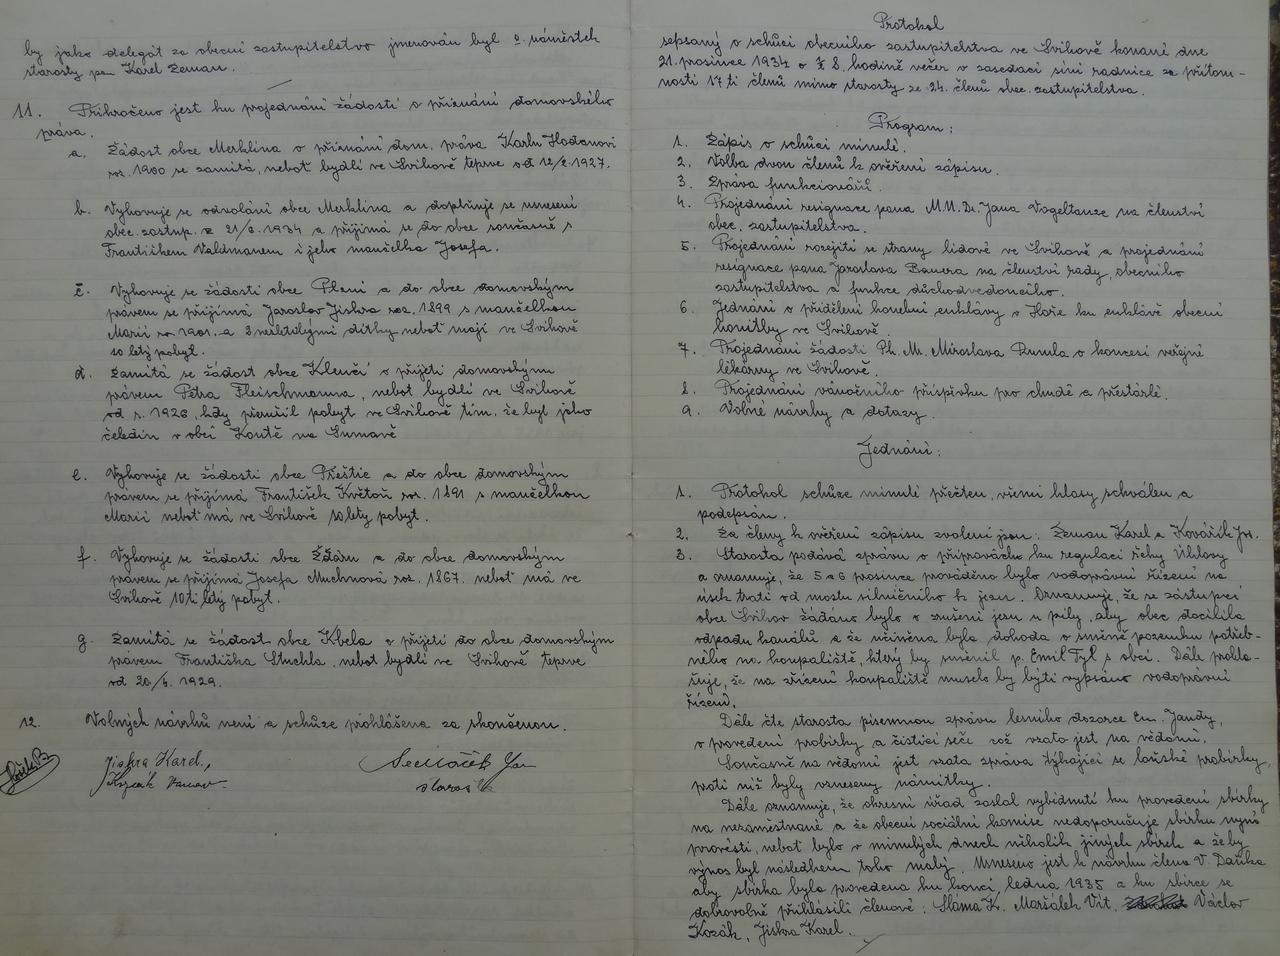 by jako delegát za obecní zastupitelstvo jmenován byl o. náměstek
starosty pan Karel Zeman.
11. Přikročeno jest ku projednání žádostí o přiznání domovského
práva.
a. Žádost obce Merklína o přiznání dom. práva Karlu Hodanovi
roz. 1900 se zamítá, neboť bydlí ve Švihově teprve od 12/2.1927.
b. Vyhovuje se odvolání obce Merklína a doplňuje se usnesení
obec. zastup. z 21/8.1934 a přijímá se do obce současně s
Františkem Valdmanem i jeho manželka Josefa.
č. Vyhovuje se žádosti obce Plzni a do obce domovským
právem se přijímá Jaroslav Jiskra roz. 1899 s manželkou
Marií roz. 1901. a 3 nezletilými dítky neboť mají ve Švihově
10 letý pobyt.
d. Zamítá se žádost obce Klenčí o přijetí domovským
právem Petra Fleischmanna, neboť bydlí ve Švihově
od r. 1926, kdy přerušil pobyt ve Švihově tím, že byl jako
čeledín v obci Koutě na Šumavě
e. Vyhovuje se žádosti obce Přeštic a do obce domovským
právem se přijímá František Květoň roz. 1891 s manželkou
Marií neboť má ve Švihově 10 letý pobyt.
f. Vyhovuje se žádosti obce Ždáru a do obce domovským
právem se přijímá Josefa Muchnová roz. 1867. neboť má ve
Švihově 10 ti letý pobyt.
g. Zamítá se žádost obce Kbela o přijetí do obce domovským
právem Františka Stuchla, neboť bydlí ve Švihově teprve
od 20/6. 1929.
12. Volných návrhů není a schůze prohlášena za skončenou.
Jiskra Karel,
Kozák
Jan
starosta
Protokol
sepsaný o schůzi obecního zastupitelstva ve Švihově konané dne
21. prosince 1934 o ½ 8. hodině večer v zasedací síni radnice za přítom-
nosti 17 ti členů mimo starosty ze 24. členů obec. zastupitelstva.
Program:
1. Zápis o schůzi minulé.
2. Volba dvou členů k ověření zápisu.
3. Zpráva funkcionářů.
4. Projednání resignace pana M.U.Dr. Jana Vogeltanze na členství
obec. zastupitelstva.
5. Projednání rozejití se strany lidové ve Švihově a projednání
resignace pana Jaroslava Bauera na členství rady, obecního
zastupitelstva a funkce důchodvedoucího.
6. Jednání o přidělení honební enklávy v Hoře ku enklávě obecní
honitby ve Švihově.
7. Projednání žádosti Ph. M. Miroslava Rumla o koncesi veřejné
lékárny ve Švihově.
8. Projednání vánočního příspěvku pro chudé a přestárlé.
9. Volné návrhy a dotazy.
Jednání:
1. Protokol schůze minulé přečten, všemi hlasy schválen a
podepsán.
2. Za členy k ověření zápisu zvoleni jsou: Zeman Karel a Kovářík Jos.
3. Starosta podává zprávu o přípravách ku regulaci řeky Úhlavy
a oznamuje, že 5 a 6 prosince prováděno bylo vodoprávní řízení na
úsek trati od mostu silničního k jezu. Oznamuje, že se zástupci
obce Švihov žádáno bylo o zrušení jezu u pily, aby obec docílila
odpadu kanálů a že učiněna byla dohoda o směně pozemku potřeb-
ného na koupaliště, který by směnil p. Emil Tyl s obcí. Dále prohla-
šuje, že na zřízení koupaliště muselo by býti vypsáno vodoprávní
řízení.
Dále čte starosta písemnou zprávu lesního dozorce Em. Jandy,
o provedení probírky a čistící seče což vzato jest na vědomí.
Současně na vědomí jest vzata zpráva týkající se loňské probírky,
proti níž byly vzneseny námitky.
Dále oznamuje, že okresní úřad zaslal vybídnutí ku provedení sbírky
na nezaměstnané a že obecní sociální komise nedoporučuje sbírku nyní
provésti, neboť bylo v minulých dnech několik jiných sbírek a že by
výnos byl následkem toho malý. Usneseno jest k návrhu člena V. Daňka
aby sbírka byla provedena ku konci ledna 1935 a ku sbírce se
dobrovolně přihlásili členové: Sláma K. Maršálek Vít. Václav
Kozák, Jiskra Karel.